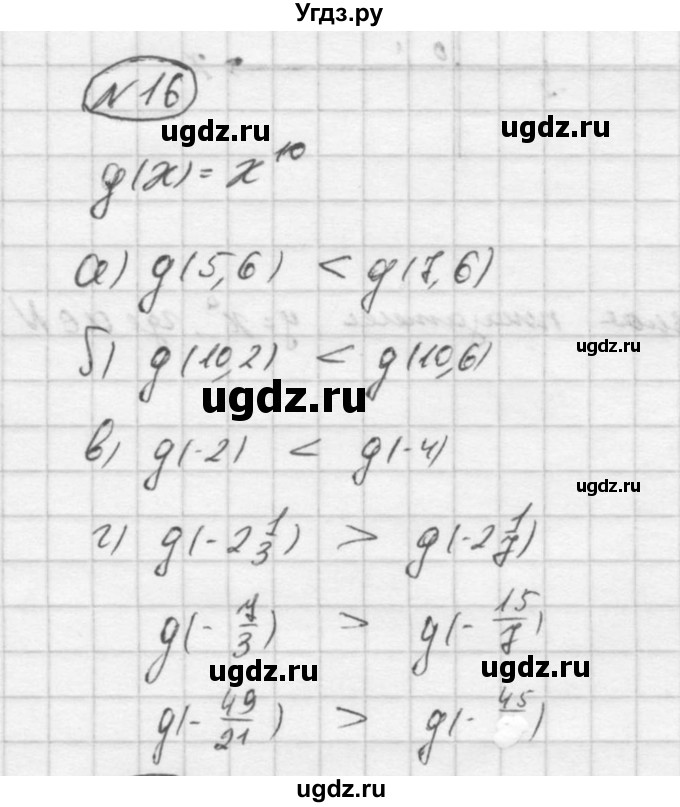 Угдз.ру
N 16
ugdz.ru
g(x) = x^10
а) g(5,6) < g(7,6)
ugdz.ru
б) g(10,2) < g(10,6)
ugdz.ru
в) g(-2) < g(-4)
ugdz.ru
г) g(-2 1/3) > g(-2 1/7)
g(-7/3) > g(-15/7)
ugdz.ru
ugdz.ru
g(-49/21) > g(-45/ )
ugdz.ru